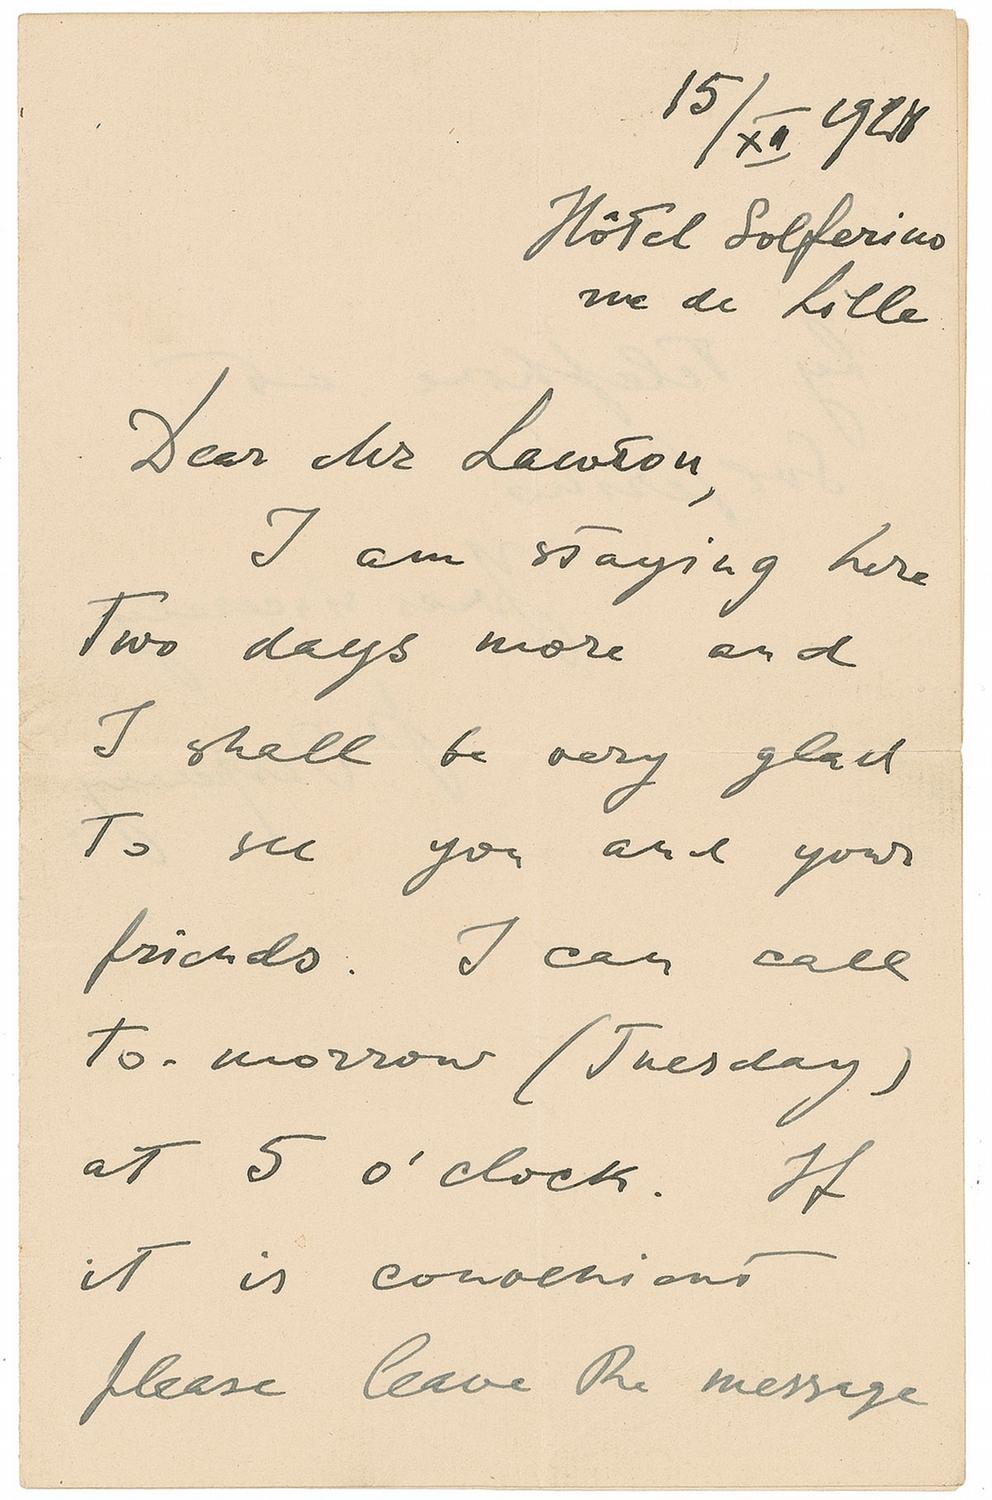 15/XII 1924
Hôtel Solferino
rue de Lille
Dear Mr Lawton,
I am staying here
two days more and
I shall be very glad
to see you and your
friends. I can call
to-morrow (Tuesday)
at 5 o'clock. If
it is convenient
please leave the message